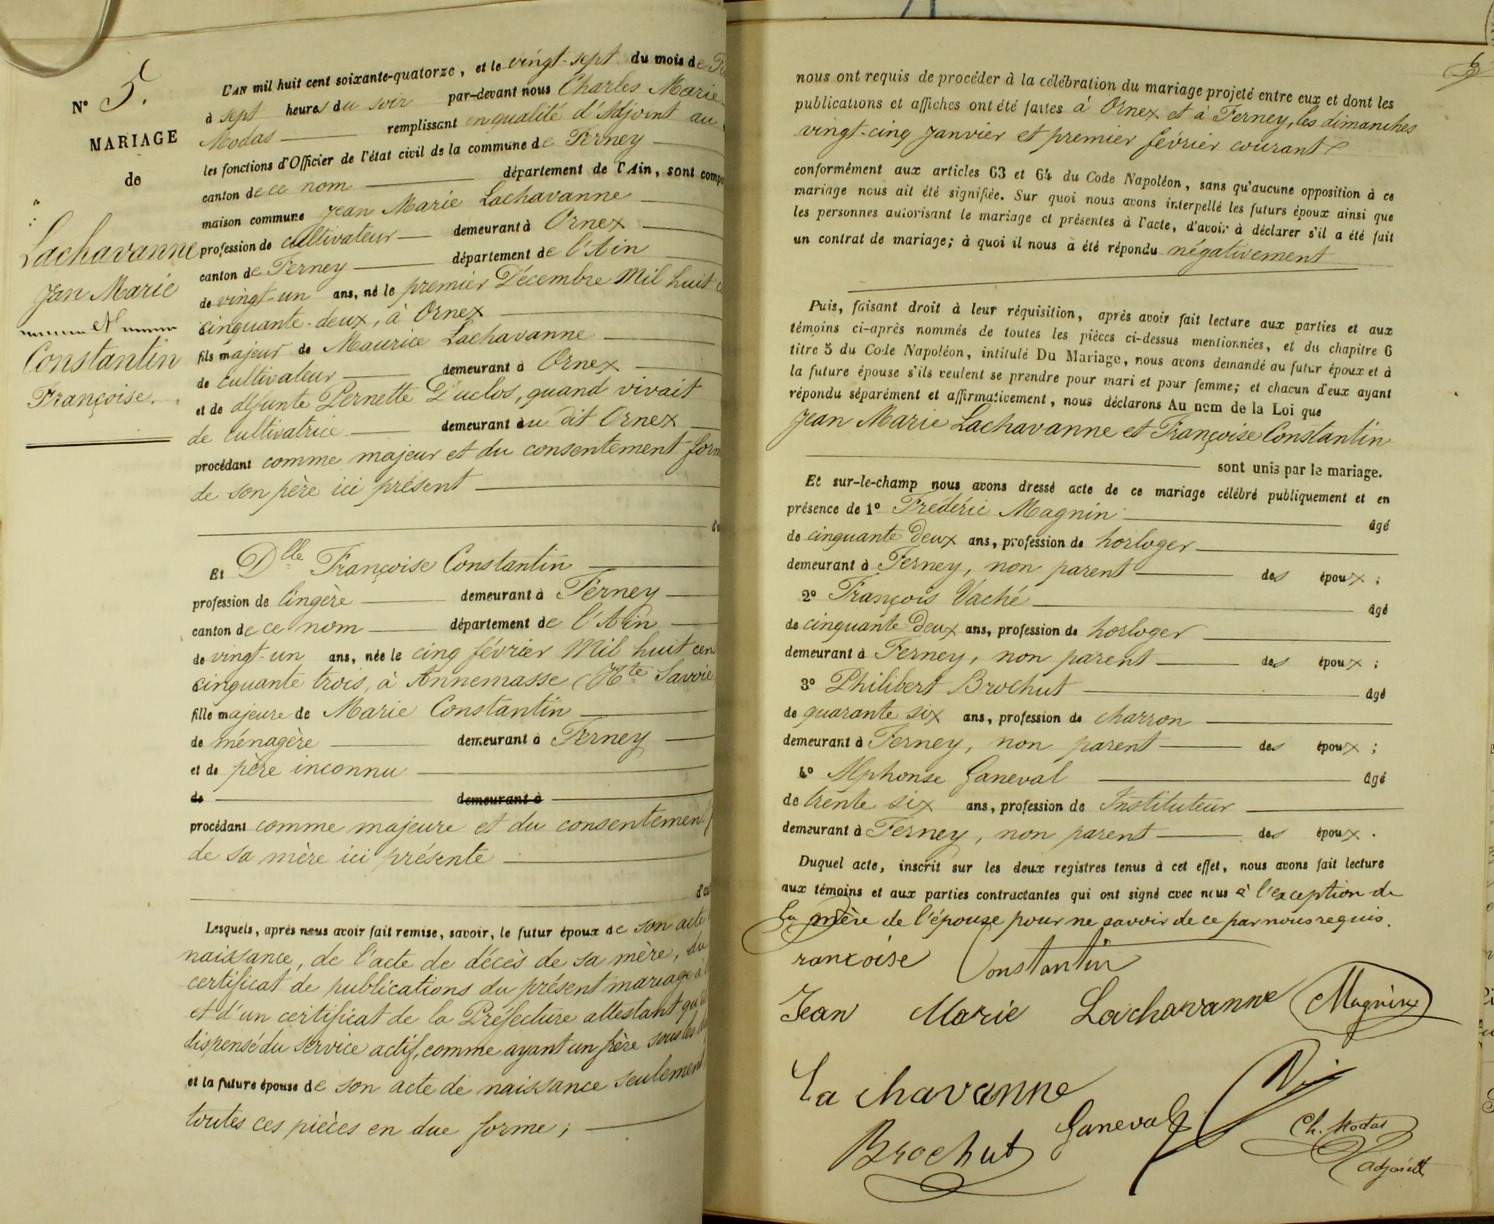 N° 5.
MARIAGE
de
Lachavanne
Jean Marie
et
Constantin
Françoise.
L'AN mil huit cent soixante-quatorze, et le vingt-sept du mois de
à sept heures du soir par-devant nous Charles Marie
Modas remplissant en qualité d'Adjoint au
les fonctions d'Officier de l'état civil de la commune de Ferney
canton de ce nom département de l'Ain, sont comp
maison commune Jean Marie Lachavanne
profession de cultivateur demeurant à Ornex
canton de Ferney département de l'Ain
de vingt-un ans, né le premier Décembre Mil huit c
cinquante-deux, à Ornex
fils majeur de Maurice Lachavanne
de cultivateur demeurant à Ornex
et de défunte Pernette Duclos, quand vivait
de cultivatrice demeurant au dit Ornex
procédant comme majeur et du consentement form
de son père ici présent
Et Dlle Françoise Constantin
profession de lingère demeurant à Ferney
canton de ce nom département de l'Ain
de vingt-un ans, née le cinq février Mil huit cen
cinquante trois, à Annemasse (Hte Savoie
fille majeure de Marie Constantin
de ménagère demeurant à Ferney
et de père inconnu
de demeurant à
procédant comme majeure et du consentement f
de sa mère ici présente
Lesquels, après nous avoir fait remise, savoir, le futur époux de son acte
naissance, de l'acte de décès de sa mère, du
certificat de publications du présent mariage à
et d'un certificat de la Préfecture attestant qu'il
dispensé du service actif, comme ayant un frère sous les
et la future épouse de son acte de naissance seulement
toutes ces pièces en due forme ;
nous ont requis de procéder à la célébration du mariage projeté entre eux et dont les
publications et affiches ont été faites à Ornex et à Ferney, les dimanches
vingt-cinq Janvier et premier février courant
conformément aux articles 63 et 64 du Code Napoléon, sans qu'aucune opposition à ce
mariage nous ait été signifiée. Sur quoi nous avons interpellé les futurs époux ainsi que
les personnes autorisant le mariage et présentes à l'acte, d'avoir à déclarer s'il a été fait
un contrat de mariage; à quoi il nous a été répondu négativement
Puis, faisant droit à leur réquisition, après avoir fait lecture aux parties et aux
témoins ci-après nommés de toutes les pièces ci-dessus mentionnées, et du chapitre 6
titre 5 du Code Napoléon, intitulé Du Mariage, nous avons demandé au futur époux et à
la future épouse s'ils veulent se prendre pour mari et pour femme; et chacun d'eux ayant
répondu séparément et affirmativement, nous déclarons Au nom de la Loi que
Jean Marie Lachavanne et Françoise Constantin
sont unis par le mariage.
Et sur-le-champ nous avons dressé acte de ce mariage célébré publiquement et en
présence de 1° Frédéric Magnin âgé
de cinquante deux ans, profession de horloger
demeurant à Ferney, non parent des époux ;
2° François Vaché âgé
de cinquante deux ans, profession de horloger
demeurant à Ferney, non parent des époux ;
3° Philibert Brochut âgé
de quarante six ans, profession de charron
demeurant à Ferney, non parent des époux ;
4° Alphonse Ganeval âgé
de trente six ans, profession de Instituteur
demeurant à Ferney, non parent des époux .
Duquel acte, inscrit sur les deux registres tenus à cet effet, nous avons fait lecture
aux témoins et aux parties contractantes qui ont signé avec nous à l'exception de
la mère de l'épouse pour ne savoir de ce par nous requis.
Françoise Constantin
Jean Marie Lachavanne Magnin
Lachavanne
Brochut Ganeval Ch. Modas
adjoint